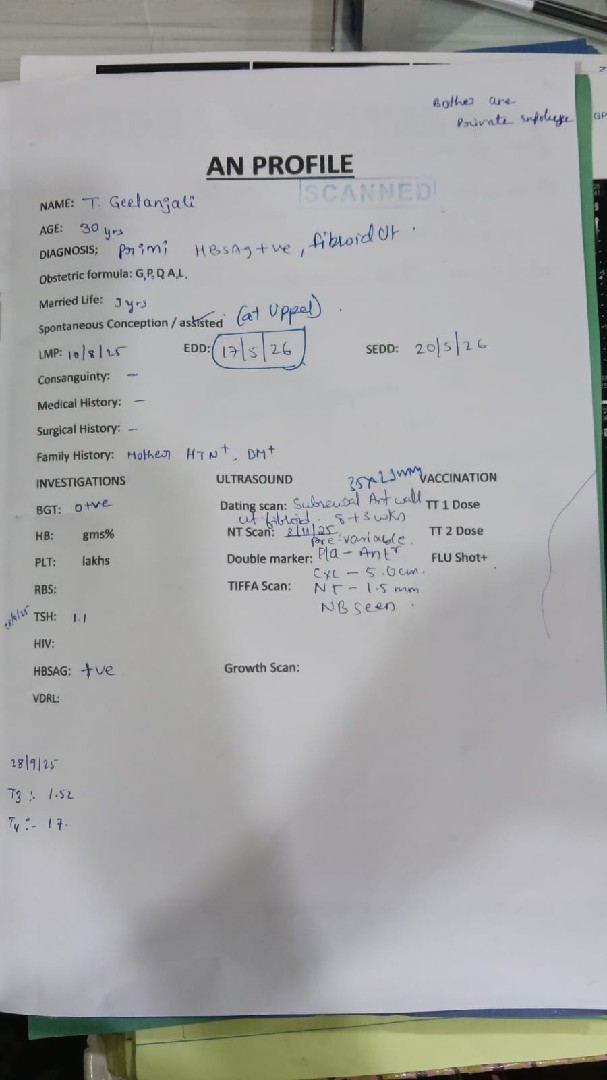 Bother are
Private
AN PROFILE
SCANNED
NAME: T. Geetanjali
AGE: 30 yrs
DIAGNOSIS; primi HBSAg +ve, fibroid Ut.
Obstetric formula: G,P,D,A,L,
Married Life: 3 yrs
Spontaneous Conception / assisted (at Uppal).
LMP: 10/8/25 EDD: 17/5/26 SEDD: 20/5/26
Consanguinty: –
Medical History: –
Surgical History: –
Family History: Mother HTN+, DM+
INVESTIGATIONS ULTRASOUND 35x23mm VACCINATION
BGT: O+ve Dating scan: Subserosal Ant wall TT 1 Dose
ut fibroid. 8+3 wks
HB: gms% NT Scan: 8/11/25 TT 2 Dose
Pre: variable.
PLT: lakhs Double marker: Pla – Antr FLU Shot+
CRL – 5.0cm.
RBS: TIFFA Scan: NT – 1.5 mm
NB seen.
TSH: 1.1
HIV:
HBSAG: +ve Growth Scan:
VDRL:
28/9/25
T3 :- 1.52
T4 :- 17.